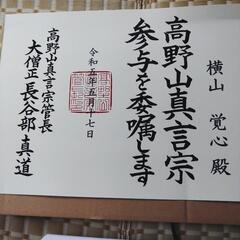 横山 覚心 殿
高野山真言宗
参与を委嘱します
令和五年五月十七日
高野山真言宗管長
大僧正 長谷部 真道